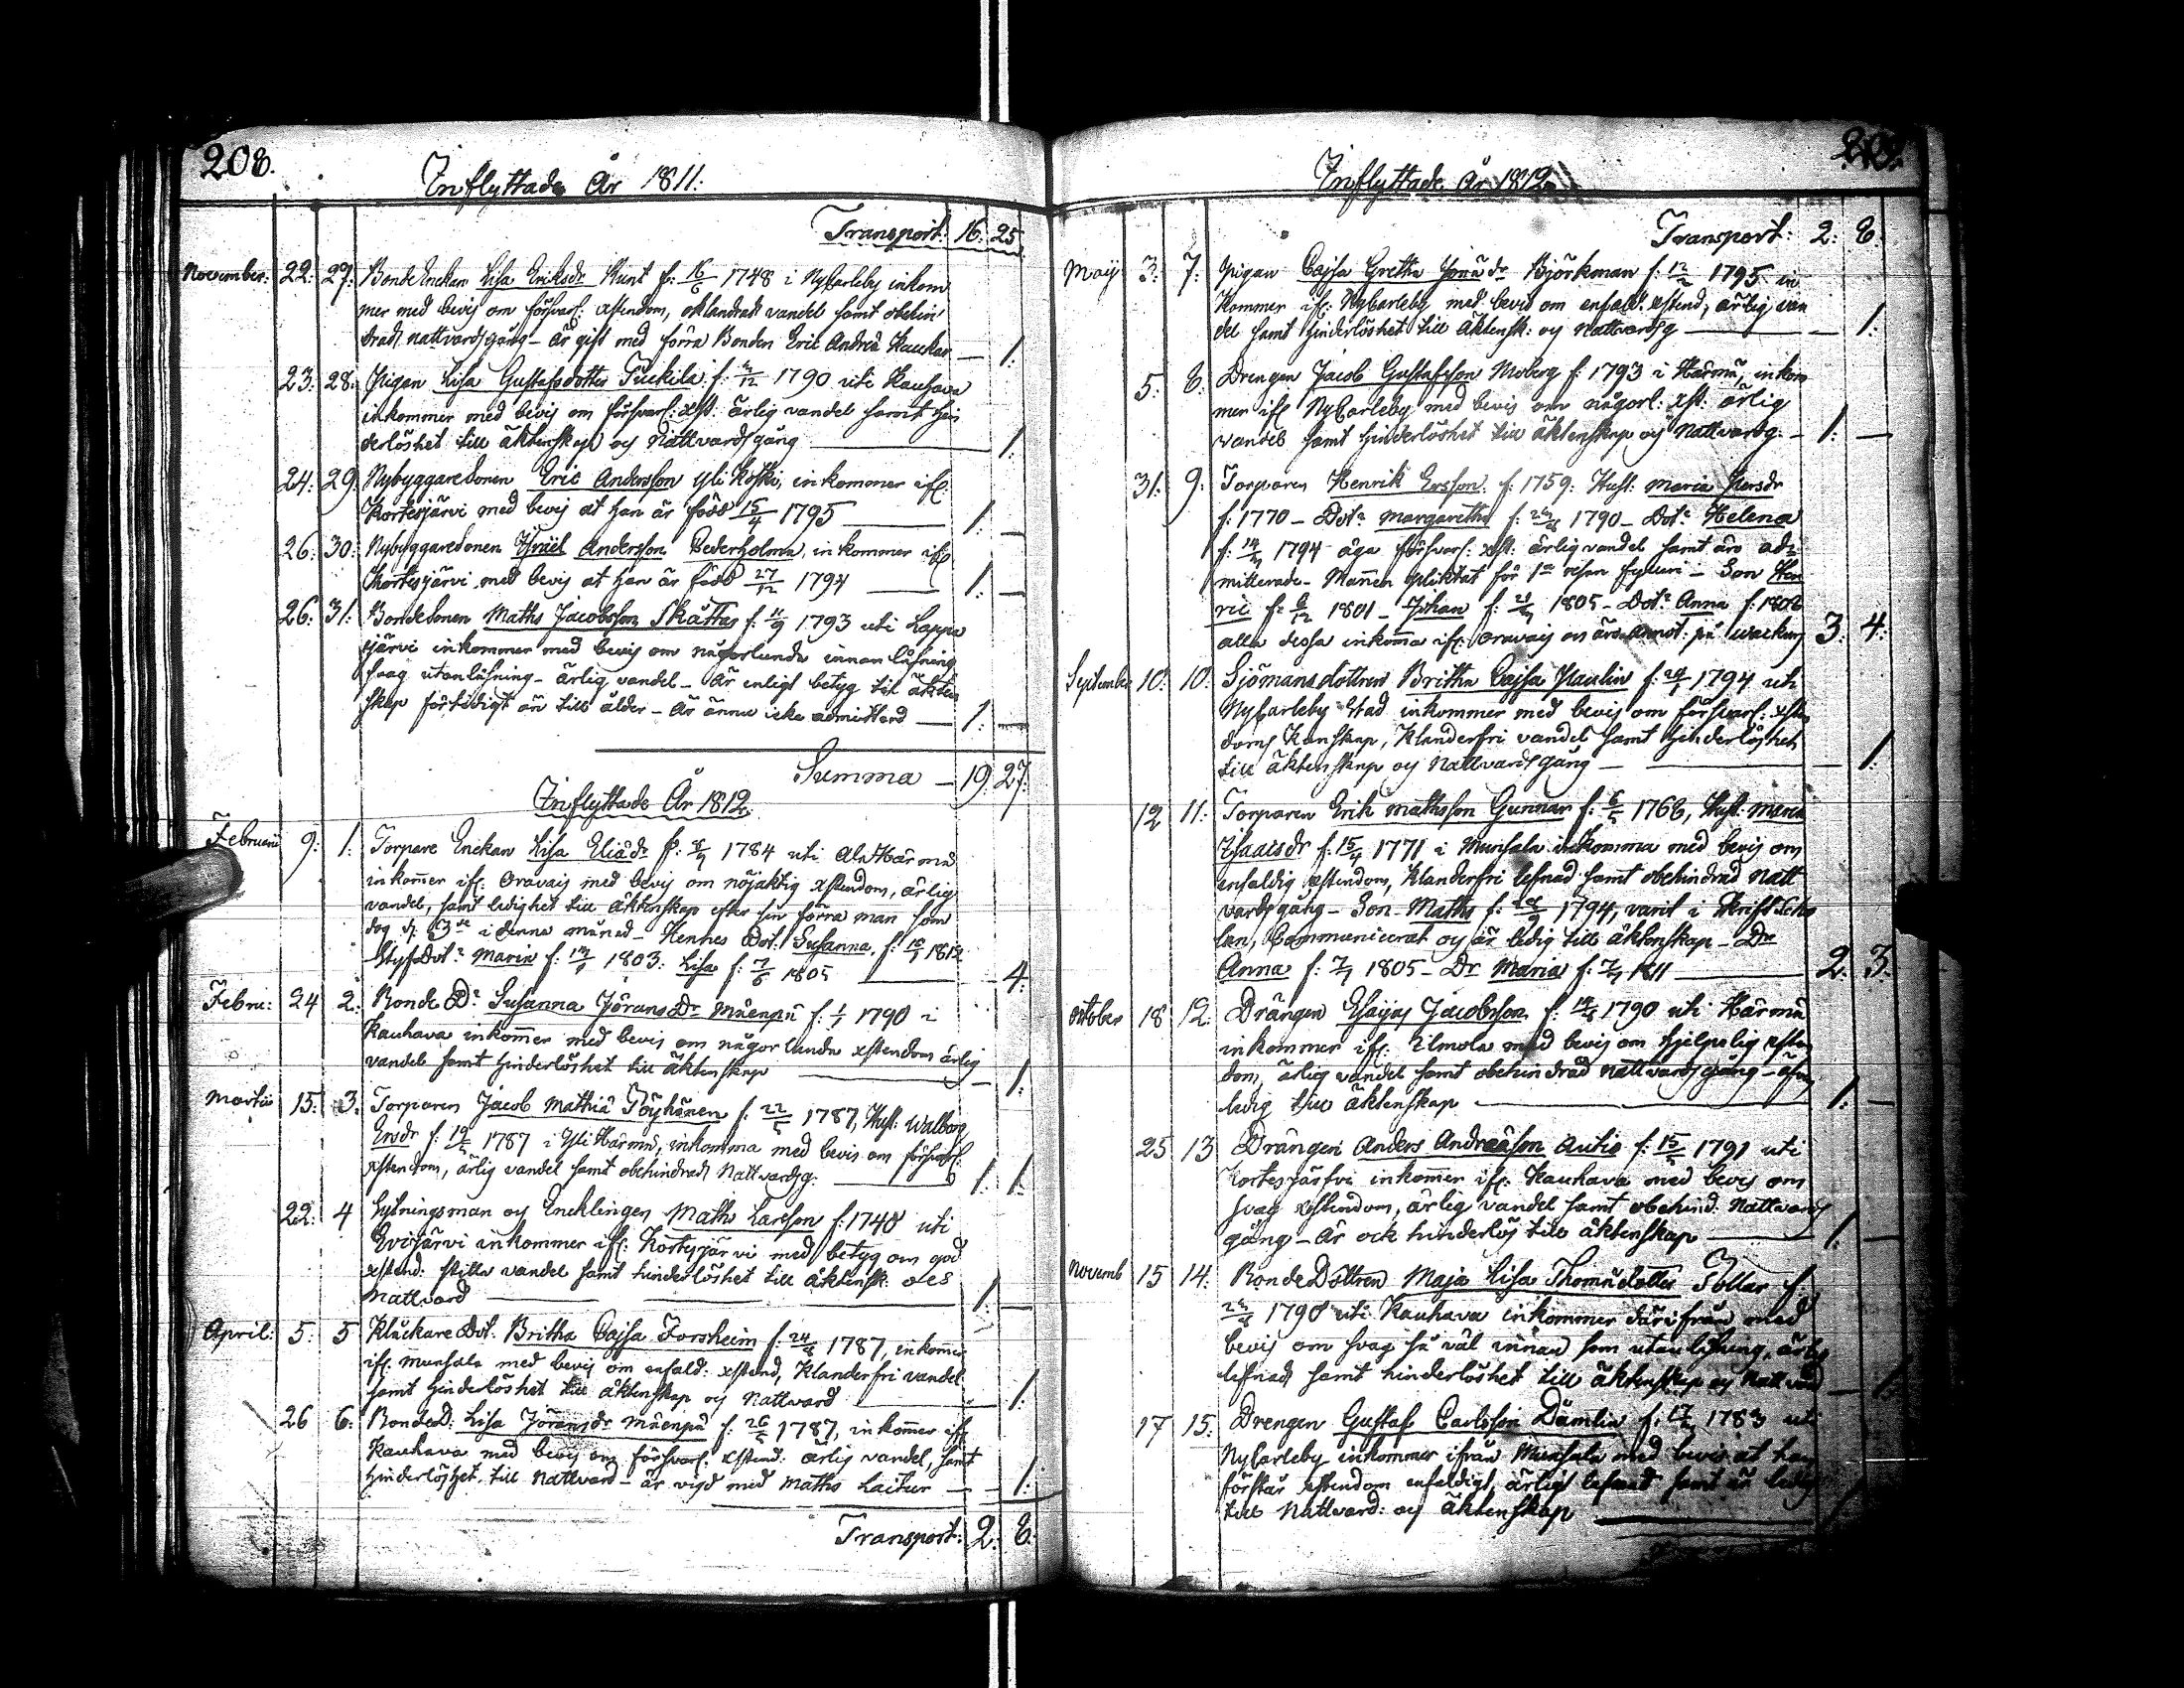 208.
Inflyttade År 1811:
Transport: 16: 25
November: 22: 27: Bonde Enckan Lisa Eriksdr Kunt f: 16/6 1748 i NyCarleby inkom
mer med bevis om försvarl: xstendom, oklandrad vandel samt obehin
drad nattvardsgång – är gift med förra Bonden Eric Andreä Kaukas — 1:
23: 28: Pigan Lisa Gustafsdotter Tuckila f: /12 1790 uti Kauhava
inkommer med bevis om försvarl: xst: ärlig vandel samt hin
derlöshet till äktenskap och Nattvardsgång — 1:
24: 29: Nybyggaresonen Eric Andersson yli Koski, inkommer ifr:
Kortesjärvi med bevis at han är född 15/4 1795 — 1: —
26: 30: Nybyggaresonen Israel Andersson Cederholm, inkommer ifr:
Kortesjärvi med bevis at han är född 27/12 1794 — 1: —
26: 31: Bondesonen Maths Jacobsson Skåttas f: 11/9 1793 uti Lappa
järvi inkommer med bevis om någorlunda innanläsning
svag utanläsning – ärlig vandel – är enligt betyg till äkten
skap förtidigt än till ålder – är ännu icke admitterd — 1: —
Summa — 19: 27:
Inflyttade År 1812.
Februarii 9: 1: Torpare Enckan Lisa Eliædr f: 1784 uti AlaHärmä
inkommer ifr: Oravais med bevis om nöjaktig xstendom, ärlig
vandel, samt ledighet till äktenskap efter sin förra man som
dog d: 13de i denna månad – Hennes Dot: Susanna, f: 1812
StyfDotr Maria f: 1803: Lisa f: 7/6 1805 — 4:
Febru: 24 2: Bonde Dr Susanna Jörans Dr Mäenpä f: 1/1 1790 i
Kauhava inkommer med bevis om någorlunda xstendom ärlig
vandel samt hinderlöshet till äktenskap — 1:
Martii 15: 3: Torparen Jacob Mathiä Pöyhönen f: 22/5 1787, Hust: Walborg
Ersdr f: 1787 i YliHärmä, inkomma med bevis om försvarl:
xstendom, ärlig vandel samt obehindrad Nattvardsg: — 1: 1:
22: 4 Sytningsman och Encklingen Maths Larsson f: 1748 uti
Evijärvi inkommer ifr: Kortesjärvi med betyg om god
xstend: stilla vandel samt hinderlöshet till äktensk: och
Nattvard — 1: —
April: 5: 5 Kluckare Dot: Britha Cajsa Forsheim f: 24/8 1787, inkommer
ifr: Munsala med bevis om enfald: xstend, Klanderfri vandel
samt hinderlöshet till äktenskap och Nattvard — 1:
26 6: BondeD: Lisa Jöransdr Mäenpä f: 26/5 1787, inkommer ifr
Kauhava med bevis om försvarl: xstend: ärlig vandel, samt
hinderlöshet till Nattvard – är vigd med Maths Laitur — 1:
Transport: 2: 8:
Inflyttade År 1812
Transport: 2: 8:
Maij 3: 7: Pigan Cajsa Greta Jonä dr Björkman f: 12/2 1795 in
kommer ifr: NyCarleby med bevis om enfald: xstend, ärlig van
del samt hinderlöshet till äktensk: och Nattvardsg — 1:
5: 8: Drengen Jacob Gustafsson Moberg f: 1793 i Härmä, inkom
mer ifr NyCarleby med bevis om någorl: xst: ärlig
vandel samt hinderlöshet till äktenskap och Nattvardg. – 1: —
31: 9: Torparen Henrik Ersson f: 1759: Hust: Maria Persdr
f: 1770 – Dotr Margaretha f: 1790 – Dotr Helena
f: 1794 äga försvarl: xst: ärlig vandel samt äro ad
mitterade – Mannen pliktat för 1a resan fylleri – Son Hen
ric f: 8/12 1801 – Johan f: 1805 – Dotr Anna f: 1808
alla dessa inkomma ifr: Oravais 3: 4:
September 10: 10: Sjömansdottren Britha Cajsa Paulin f: 20/1 1794 uti
NyCarleby Stad inkommer med bevis om försvarl: xsten
doms Kunskap, Klanderfri vandel samt hinderlöshet
till äktenskap och Nattvardsgång — 1:
12 11: Torparen Erik Mathsson Gunnar f: 6/5 1768, Hust: Maria
Isaacsdr f: 15/4 1771 i Munsala inkomma med bevis om
enfaldig xstendom, Klanderfri lefnad samt obehindrad Natt
vardsgång – Son Maths f: /9 1794, varit i Skriftscho
lan, Communicerat och är ledig till äktenskap – Dr
Anna f: 7/1 1805 – Dr Maria f: 1811 — 2: 3:
October 18 12: Drängen Esaijas Jacobsson f: 14/8 1790 uti Härmä
inkommer ifr: Ilmola med bevis om hjelpelig xsten
dom, ärlig vandel samt obehindrad nattvardsgång – äfven
ledig till äktenskap — 1: —
25 13 Drängen Anders Andreäson Autio f: 15/5 1791 uti
Kortesjärfvi inkommer ifr: Kauhava med bevis om
svag xstendom, ärlig vandel samt obehind: Nattvards
gång – är ock hinderlös till äktenskap — 1: —
Novemb 15 14: BondeDottren Maja Lisa Thomädotter Sollar f:
1790 uti Kauhava inkommer därifrån med
bevis om svag så väl innan som utanläsning, ärlig
lefnad samt hinderlöshet till äktenskap och Nattvard — 1:
17 15: Drengen Gustaf Carlsson Dämlin f: 1783 uti
NyCarleby inkommer ifrån Munsala med bevis at han
förstår xstendom enfaldigt, ärligt lefnad samt är ledig
till Nattvard: och äktenskap